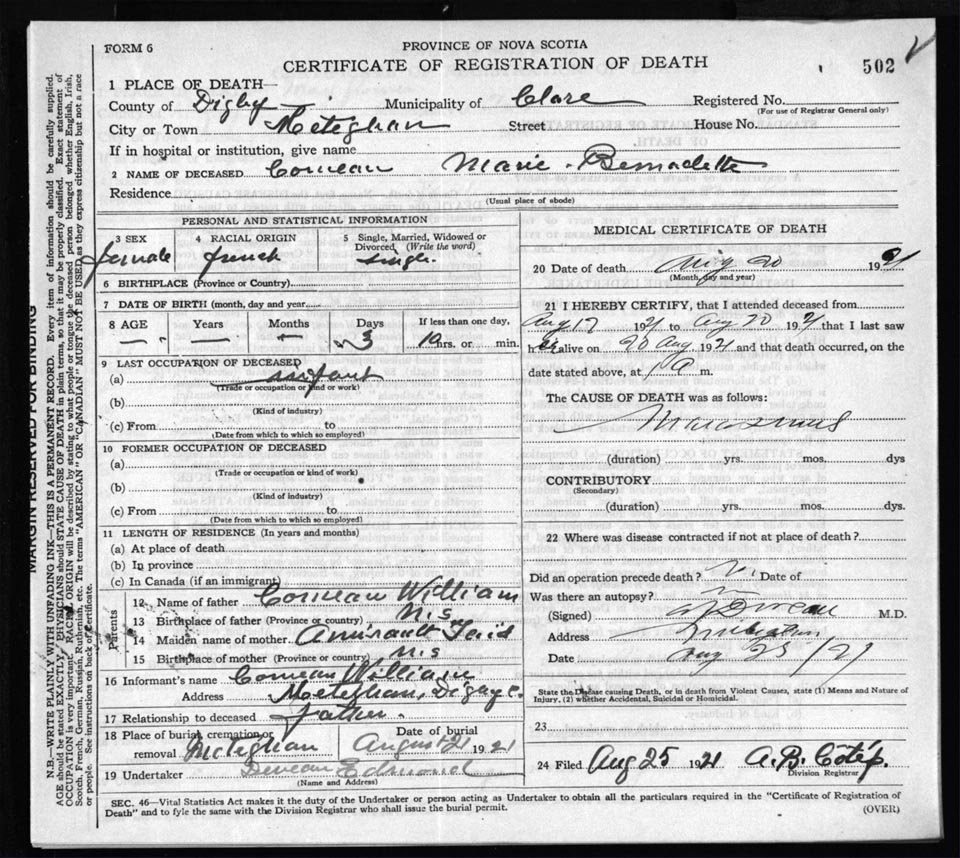 FORM 6
PROVINCE OF NOVA SCOTIA
CERTIFICATE OF REGISTRATION OF DEATH
502
1 PLACE OF DEATH—
County of Digby Municipality of Clare Registered No.
(For use of Registrar General only)
City or Town Meteghan Street House No.
If in hospital or institution, give name
2 NAME OF DECEASED Comeau Marie Bernadette
Residence
(Usual place of abode)
PERSONAL AND STATISTICAL INFORMATION
3 SEX 4 RACIAL ORIGIN 5 Single, Married, Widowed or
Divorced (Write the word)
female french single
6 BIRTHPLACE (Province or Country)
7 DATE OF BIRTH (month, day and year)
8 AGE Years Months Days If less than one day,
— — 3 10 hrs. or min.
9 LAST OCCUPATION OF DECEASED
(a) infant
(Trade or occupation or kind of work)
(b)
(Kind of industry)
(c) From to
(Date from which to which so employed)
10 FORMER OCCUPATION OF DECEASED
(a)
(Trade or occupation or kind of work)
(b)
(Kind of industry)
(c) From to
(Date from which to which so employed)
11 LENGTH OF RESIDENCE (In years and months)
(a) At place of death
(b) In province
(c) In Canada (if an immigrant)
Parents
12 Name of father Comeau William
13 Birthplace of father (Province or country) N.S
14 Maiden name of mother Amirault
15 Birthplace of mother (Province or country) N.S
16 Informant's name Comeau William
Address Meteghan, Digby C.
17 Relationship to deceased father.
18 Place of burial, cremation or Date of burial
removal Meteghan August 21 1921
19 Undertaker Deveau Edmond
(Name and Address)
MEDICAL CERTIFICATE OF DEATH
20 Date of death Aug 20 1921
(Month, day and year)
21 I HEREBY CERTIFY, that I attended deceased from
Aug 17 1921 to Aug 20 1921 that I last saw
her alive on 20 Aug 1921 and that death occurred, on the
date stated above, at m.
The CAUSE OF DEATH was as follows:
Marasmus
(duration) yrs. mos. dys
CONTRIBUTORY
(Secondary)
(duration) yrs. mos. dys.
22 Where was disease contracted if not at place of death?
Did an operation precede death? Date of
Was there an autopsy?
(Signed) M.D.
Address Meteghan
Date Aug 23 /21
State the Disease causing Death, or in death from Violent Causes, state (1) Means and Nature of
Injury, (2) whether Accidental, Suicidal or Homicidal.
23
24 Filed Aug 25 1921 A.B. Coté p.
Division Registrar
SEC. 46—Vital Statistics Act makes it the duty of the Undertaker or person acting as Undertaker to obtain all the particulars required in the "Certificate of Registration of
Death" and to fyle the same with the Division Registrar who shall issue the burial permit. (OVER)
MARGIN RESERVED FOR BINDING
N.B.—WRITE PLAINLY WITH UNFADING INK—THIS IS A PERMANENT RECORD. Every item of information should be carefully supplied.
AGE should be stated EXACTLY. PHYSICIANS should STATE CAUSE OF DEATH in plain terms, so that it may be properly classified. Exact statement of
OCCUPATION is very important. RACIAL ORIGIN will be described by stating to what people or tongue the deceased person belonged whether English, Irish,
Scotch, French, German, Russian, Ruthenian, etc. The terms "AMERICAN" OR "CANADIAN" MUST NOT BE USED as they express citizenship but not a race
or people. See instructions on back of Certificate.